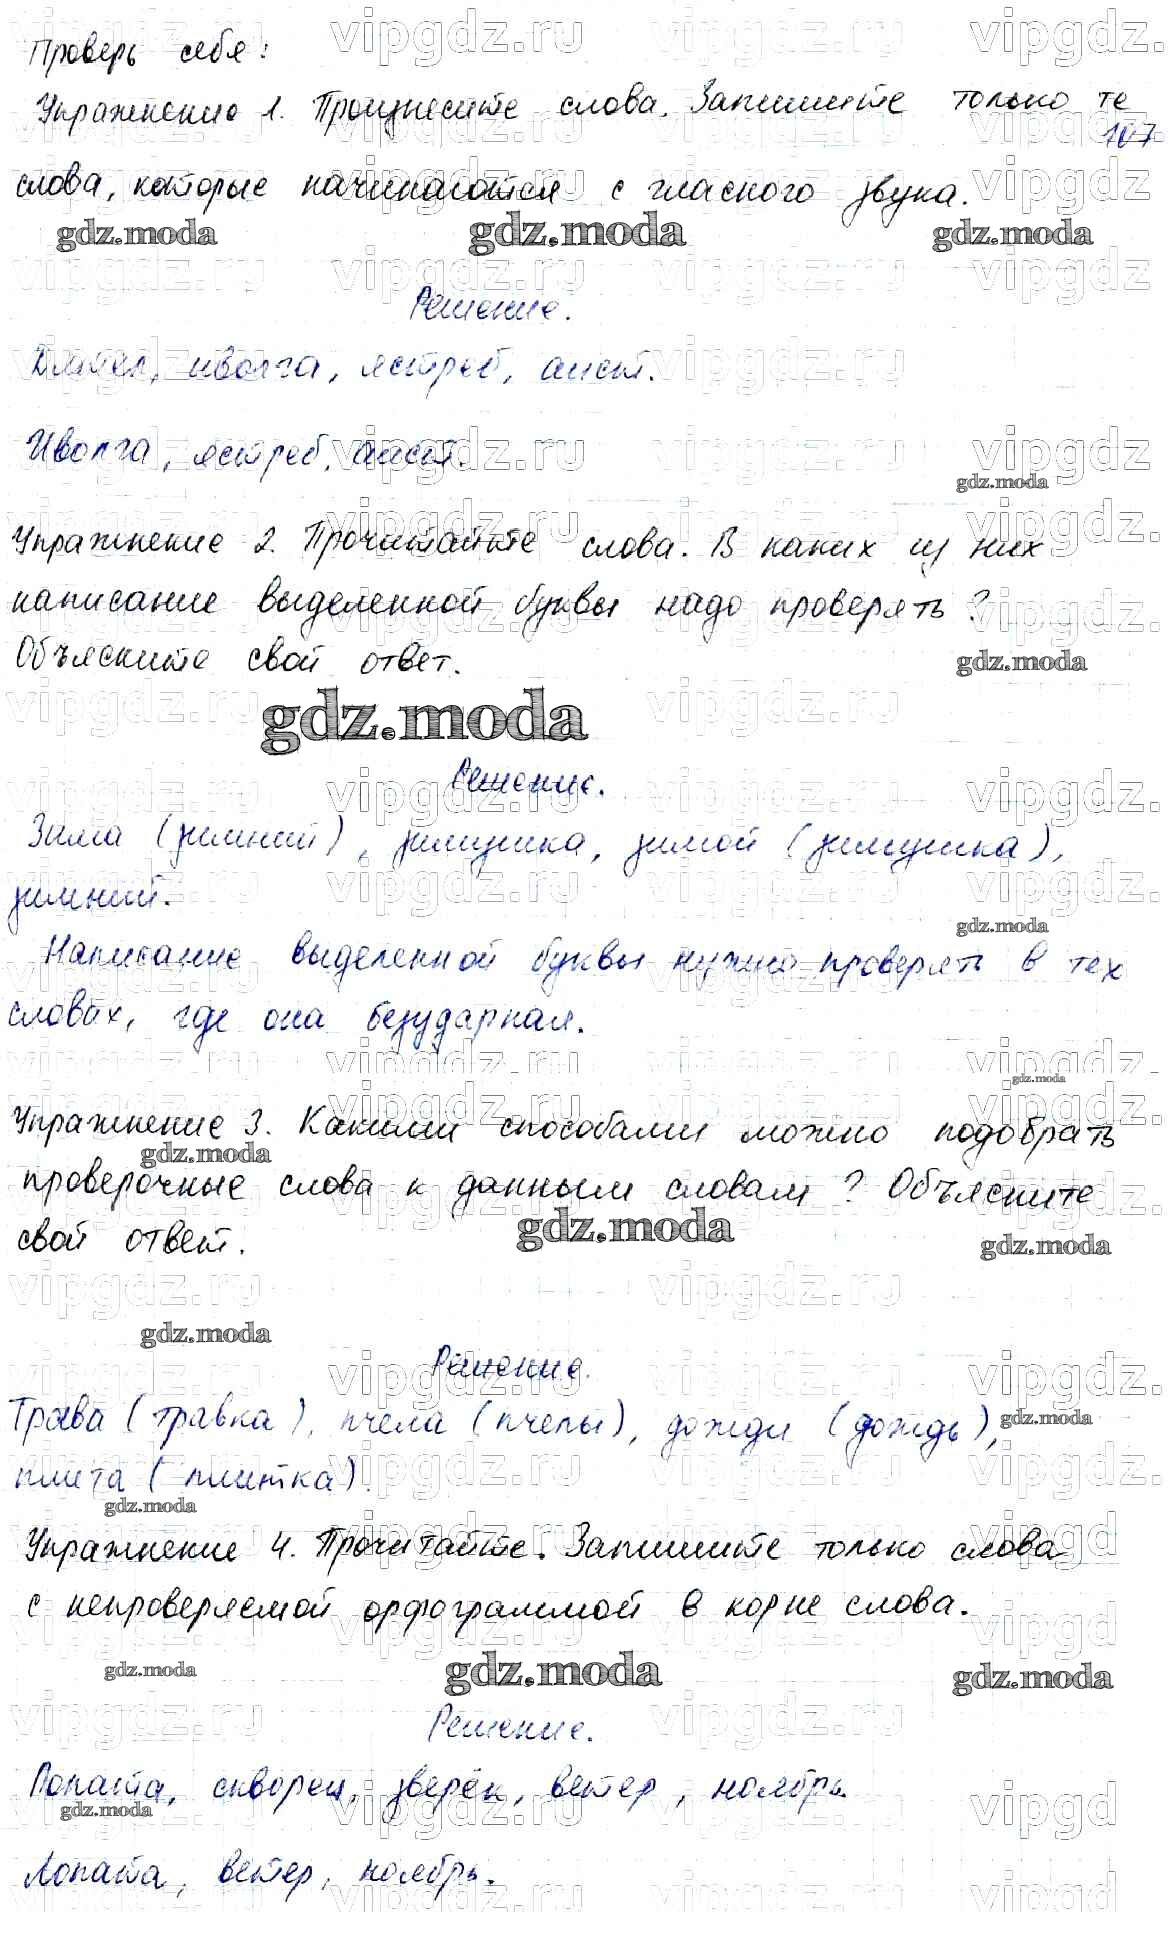 Проверь себя:
Упражнение 1. Произнесите слова. Запишите только те
107
слова, которые начинаются с гласного звука.
gdz.moda gdz.moda gdz.moda
Решение.
иволга, ястреб, аист.
Иволга, ястреб, аист.
gdz.moda
Упражнение 2. Прочитайте слова. В каких из них
написание выделенной буквы надо проверять?
Объясните свой ответ.
gdz.moda
gdz.moda
Решение.
Зима (зимний), зимушка, зимой (зимушка),
зимний.
gdz.moda
Написание выделенной буквы нужно проверять в тех
словах, где она безударная.
gdz.moda
Упражнение 3. Какими способами можно подобрать
gdz.moda
проверочные слова к данным словам? Объясните
свой ответ.
gdz.moda gdz.moda
gdz.moda
Решение.
Трава (травка), пчела (пчелы), дожди (дождь),
gdz.moda
плита (плитка).
gdz.moda
Упражнение 4. Прочитайте. Запишите только слова
с непроверяемой орфограммой в корне слова.
gdz.moda gdz.moda gdz.moda
Решение.
Лопата, скворец, зверёк, ветер, ноябрь.
gdz.moda
Лопата, ветер, ноябрь.